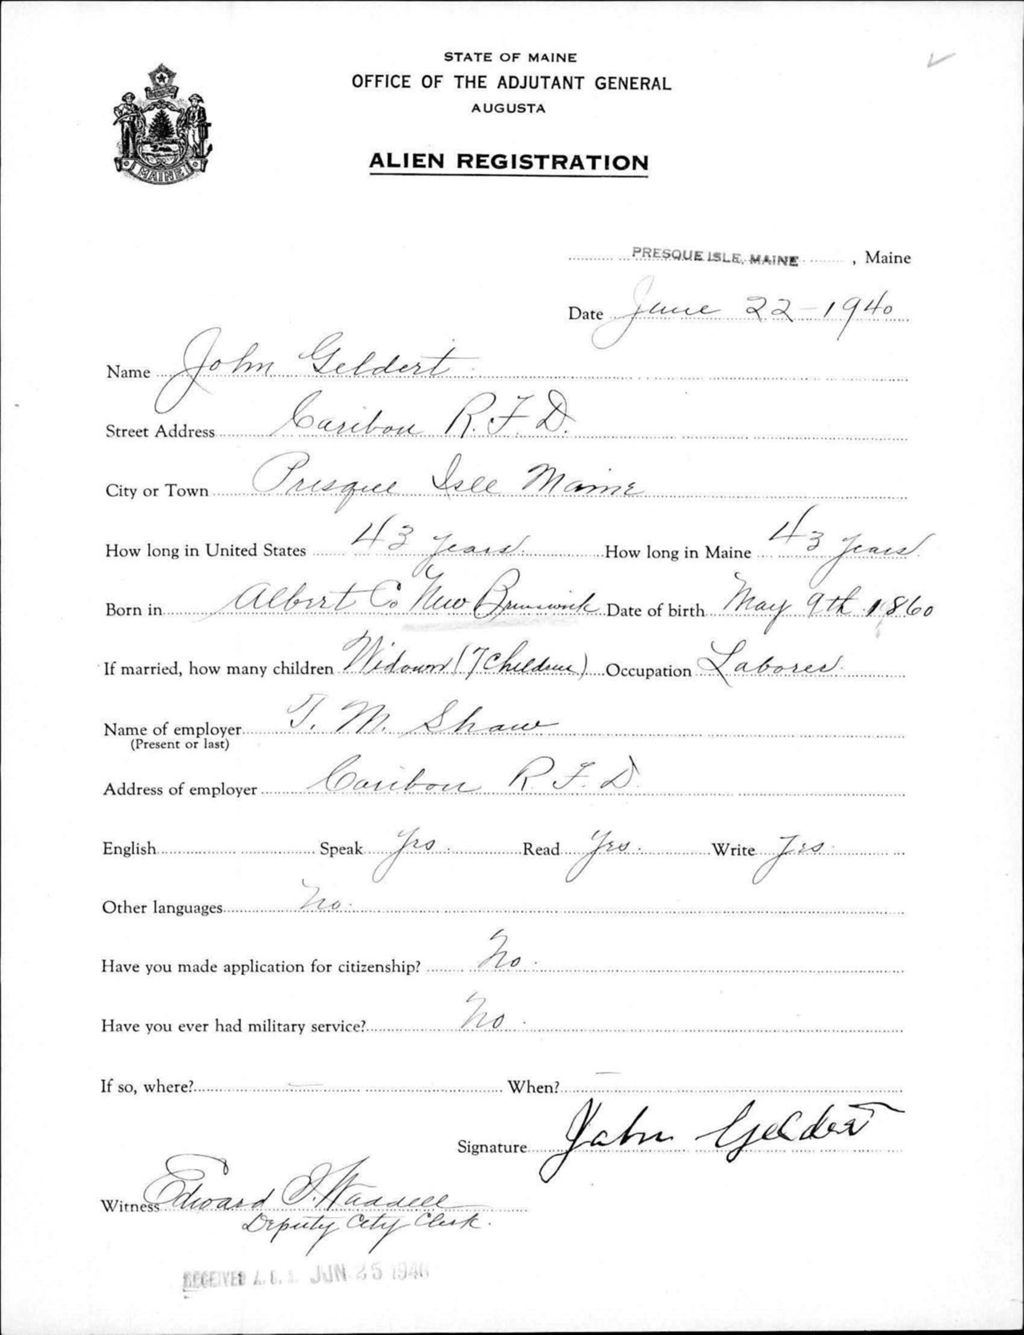 STATE OF MAINE
OFFICE OF THE ADJUTANT GENERAL
AUGUSTA
ALIEN REGISTRATION
MAINE
PRESQUE ISLE, MAINE , Maine
Date June 22-1940
Name John Geldert
Street Address Caribou R.F.D.
City or Town Presque Isle Maine
How long in United States 43 years How long in Maine 43 years
Born in Albert Co New Brunswick Date of birth May 9th 1860
If married, how many children Widower (7 Children) Occupation Laborer
Name of employer T. M. Shaw
(Present or last)
Address of employer Caribou R.F.D.
English Speak Yes Read Yes Write Yes
Other languages No
Have you made application for citizenship? No
Have you ever had military service? No
If so, where? — When? —
Signature John Geldert
Witness Edward I. Waddell
Deputy City Clerk.
RECEIVED A. G. JUN 25 1940